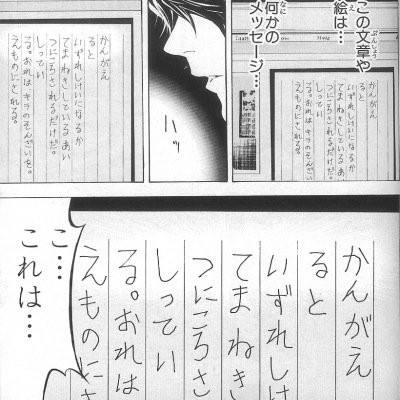 この文章や
ぶんしょう
絵は…
え
何かの
なに
メッセージ…
かんがえ
ると
いずれしけいになるか
てまねきしているあい
つにころされるだけだ。
しってい
る。おれはキラのそんざいを。
えものにされる。
ハッ
かんがえ
ると
いずれしけいになるか
てまねきしているあい
つにころされるだけだ。
しってい
る。おれはキラのそんざいを。
えものにされる。
かんがえ
ると
いずれしけ
てまねき
つにころさ
しってい
る。おれは
えものにさ
こ…
これは…